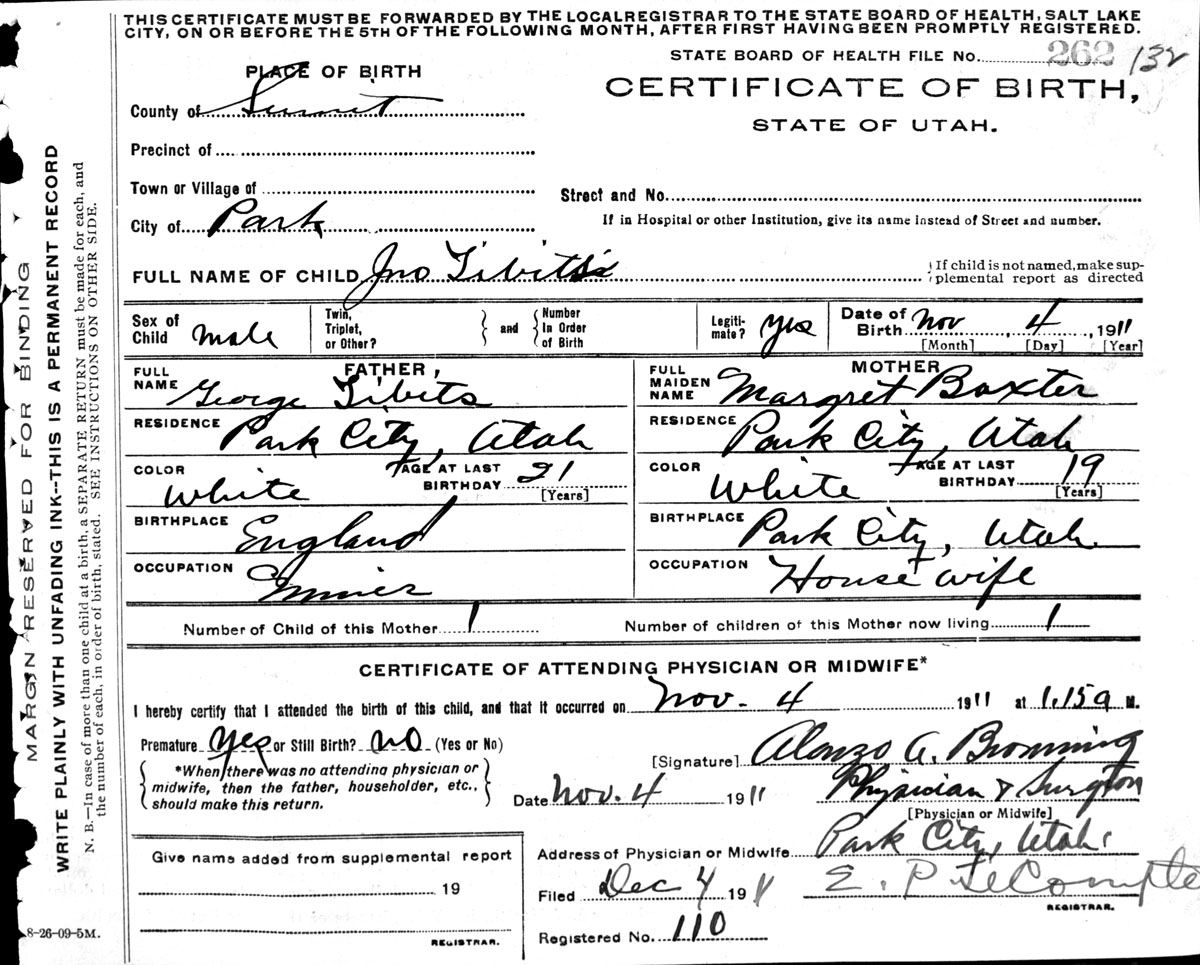 THIS CERTIFICATE MUST BE FORWARDED BY THE LOCAL REGISTRAR TO THE STATE BOARD OF HEALTH, SALT LAKE
CITY, ON OR BEFORE THE 5TH OF THE FOLLOWING MONTH, AFTER FIRST HAVING BEEN PROMPTLY REGISTERED.
STATE BOARD OF HEALTH FILE No. 262 132
PLACE OF BIRTH
CERTIFICATE OF BIRTH,
STATE OF UTAH.
County of Summit
Precinct of
Town or Village of
Street and No.
City of Park
If in Hospital or other Institution, give its name instead of Street and number.
FULL NAME OF CHILD Jno Tibits
If child is not named, make sup-
plemental report as directed
Sex of Child male
Twin, Triplet, or Other?
and
Number In Order of Birth
Legiti-mate? yes
Date of Birth Nov 4, 1911
[Month] [Day] [Year]
FATHER,
FULL NAME George Tibits
RESIDENCE Park City, Utah
COLOR White
AGE AT LAST BIRTHDAY 21
[Years]
BIRTHPLACE England
OCCUPATION Miner
MOTHER
FULL MAIDEN NAME Margret Baxter
RESIDENCE Park City, Utah
COLOR White
AGE AT LAST BIRTHDAY 19
[Years]
BIRTHPLACE Park City, Utah.
OCCUPATION House wife
Number of Child of this Mother 1
Number of children of this Mother now living 1
CERTIFICATE OF ATTENDING PHYSICIAN OR MIDWIFE*
I hereby certify that I attended the birth of this child, and that it occurred on Nov. 4 1911 at 1.15 a M.
Premature yes or Still Birth? no (Yes or No)
*When there was no attending physician or
midwife, then the father, householder, etc.,
should make this return.
[Signature] Alonzo A. Browning
Date Nov. 4 1911
Physician & Surgeon
[Physician or Midwife]
Give name added from supplemental report
19
REGISTRAR.
Address of Physician or Midwife Park City, Utah.
Filed Dec 4 191
E. P. LeCompte
REGISTRAR.
Registered No. 110
MARGIN RESERVED FOR BINDING
WRITE PLAINLY WITH UNFADING INK--THIS IS A PERMANENT RECORD
N. B.—In case of more than one child at a birth, a SEPARATE RETURN must be made for each, and
the number of each, in order of birth, stated. SEE INSTRUCTIONS ON OTHER SIDE.
8-26-09-5M.